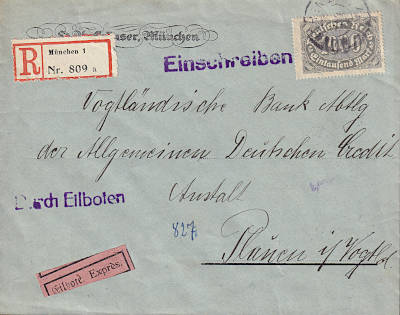 München
München 1
R
Nr. 809 a
Einschreiben
Einlausend Mark
Vogtländische Bank Abtlg
der Allgemeinen Deutschen Credit
Anstalt
Durch Eilboten
827
Plauen i/Vogtld.
Exprès.